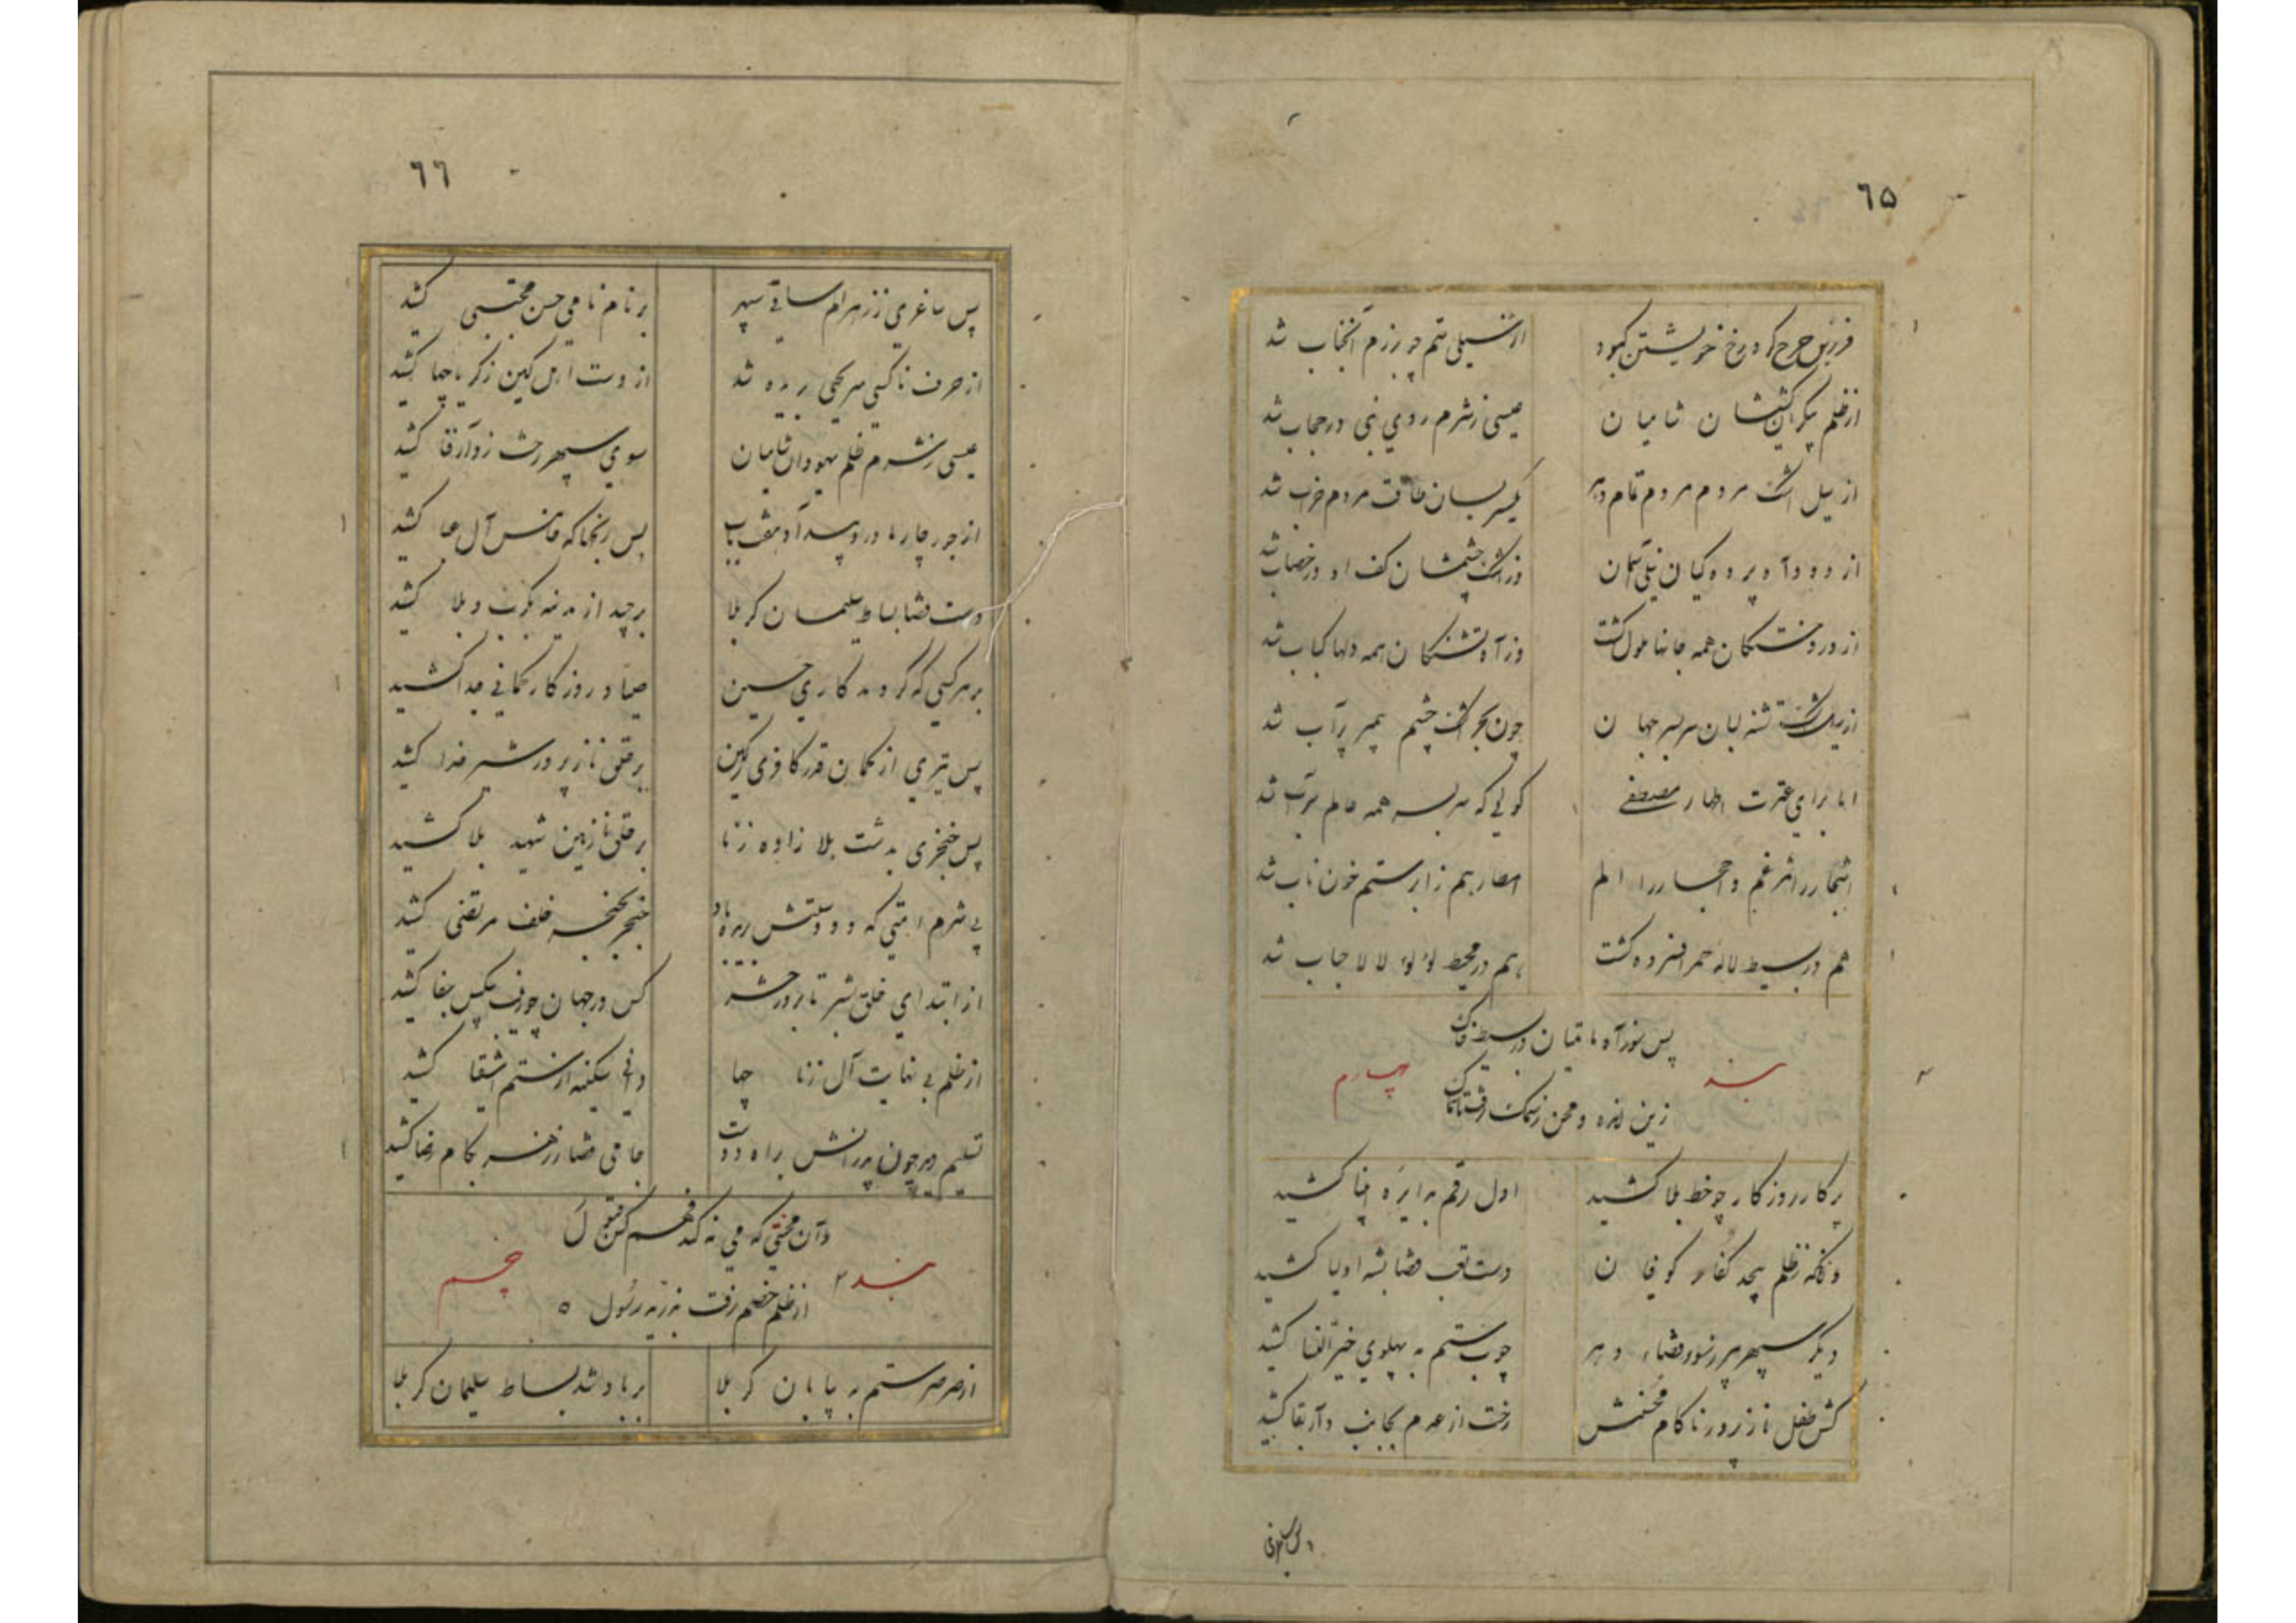 ٦۵
از سیلی ستم چو رزم آنجناب شد
از ظلم شامیان
عیسی ز شرم روی نبی در حجاب شد
از سیل اشک مردم مردم تمام دهر
یکسر بسان طاقت مردم خراب شد
از دود آه پرده کیان نیلی آسمان
وز اشک چشمشان کف او در خضاب شد
همه جانها ملول کشت
وز آه تشنکان همه دلها کباب شد
تشنه لبان سربسر جهان
چون بحر اشک چشم پر آب شد
ابا برای عترت اطهار مصطفی
کوئی که سربسر همه عالم سراب شد
اشجار را ثمر غم و احجار را الم
امطار هم ز ابر ستم خون ناب شد
هم در بسیط لاله حمرا فسرده کشت
هم در محیط لؤلؤ لالا حباب شد
پس شور آه ماتمیان در بسیط خاک
بند چهارم
زین انده و محن ز سمک رفت تا سماک
پرکار روزکار چو خط بلا کشید
اول رقم به دایره انبیا کشید
وانکه ز ظلم بیحد کفار کوفیان
دست تعب قضا بشه اولیا کشید
دیکر سپهر دهر
چوب ستم به پهلوی خیر النسا کشید
کش طفل ناز پرور ناکام محسنش
رخت از عدم بجانب دار بقا کشید
٦٦
پس ساغری ز زهر ام ساقی سپهر
بر نام نامی حسن مجتبی کشید
از حرف ناکسی سر یحیی بریده شد
از دست اهل کین زکریا چها کشید
عیسی ز شرم ظلم یهودان شامیان
سوی سپهر رخت ز دار فنا کشید
از جور
پس رنجها که خامس آل عبا کشید
دست قضا بساط سلیمان کربلا
برچید از مدینه بکرب و بلا کشید
بر هر کسی که کرد مددکاری حسین
صیاد روزکار کمانی جدا کشید
پس تیری از کمان قدر کافری ز کین
بر حلق ناز پرور شیر خدا کشید
پس خنجری بدشت بلا زاده زنا
بر حلق نازنین شهید بلا کشید
بی شرم امتی که دو دستش بریده باد
خنجر بحنجر خلف مرتضی کشید
از ابتدای خلق بشر تا بروز حشر
کس در جهان جفا کشید
از ظلم بی نهایت آل زنا چها
دانی سکینه از ستم اشقیا کشید
تسلیم وار چون پدرانش براه دوست
جامی قضا ز زهر بکام رضا کشید
وان محنتی که می نکند فهم کس قبول
بند ۲ پنجم
از ظلم خصم رفت بذریه رسول ٥
از صرصر ستم به بیابان کربلا
بر باد شد بساط سلیمان کربلا